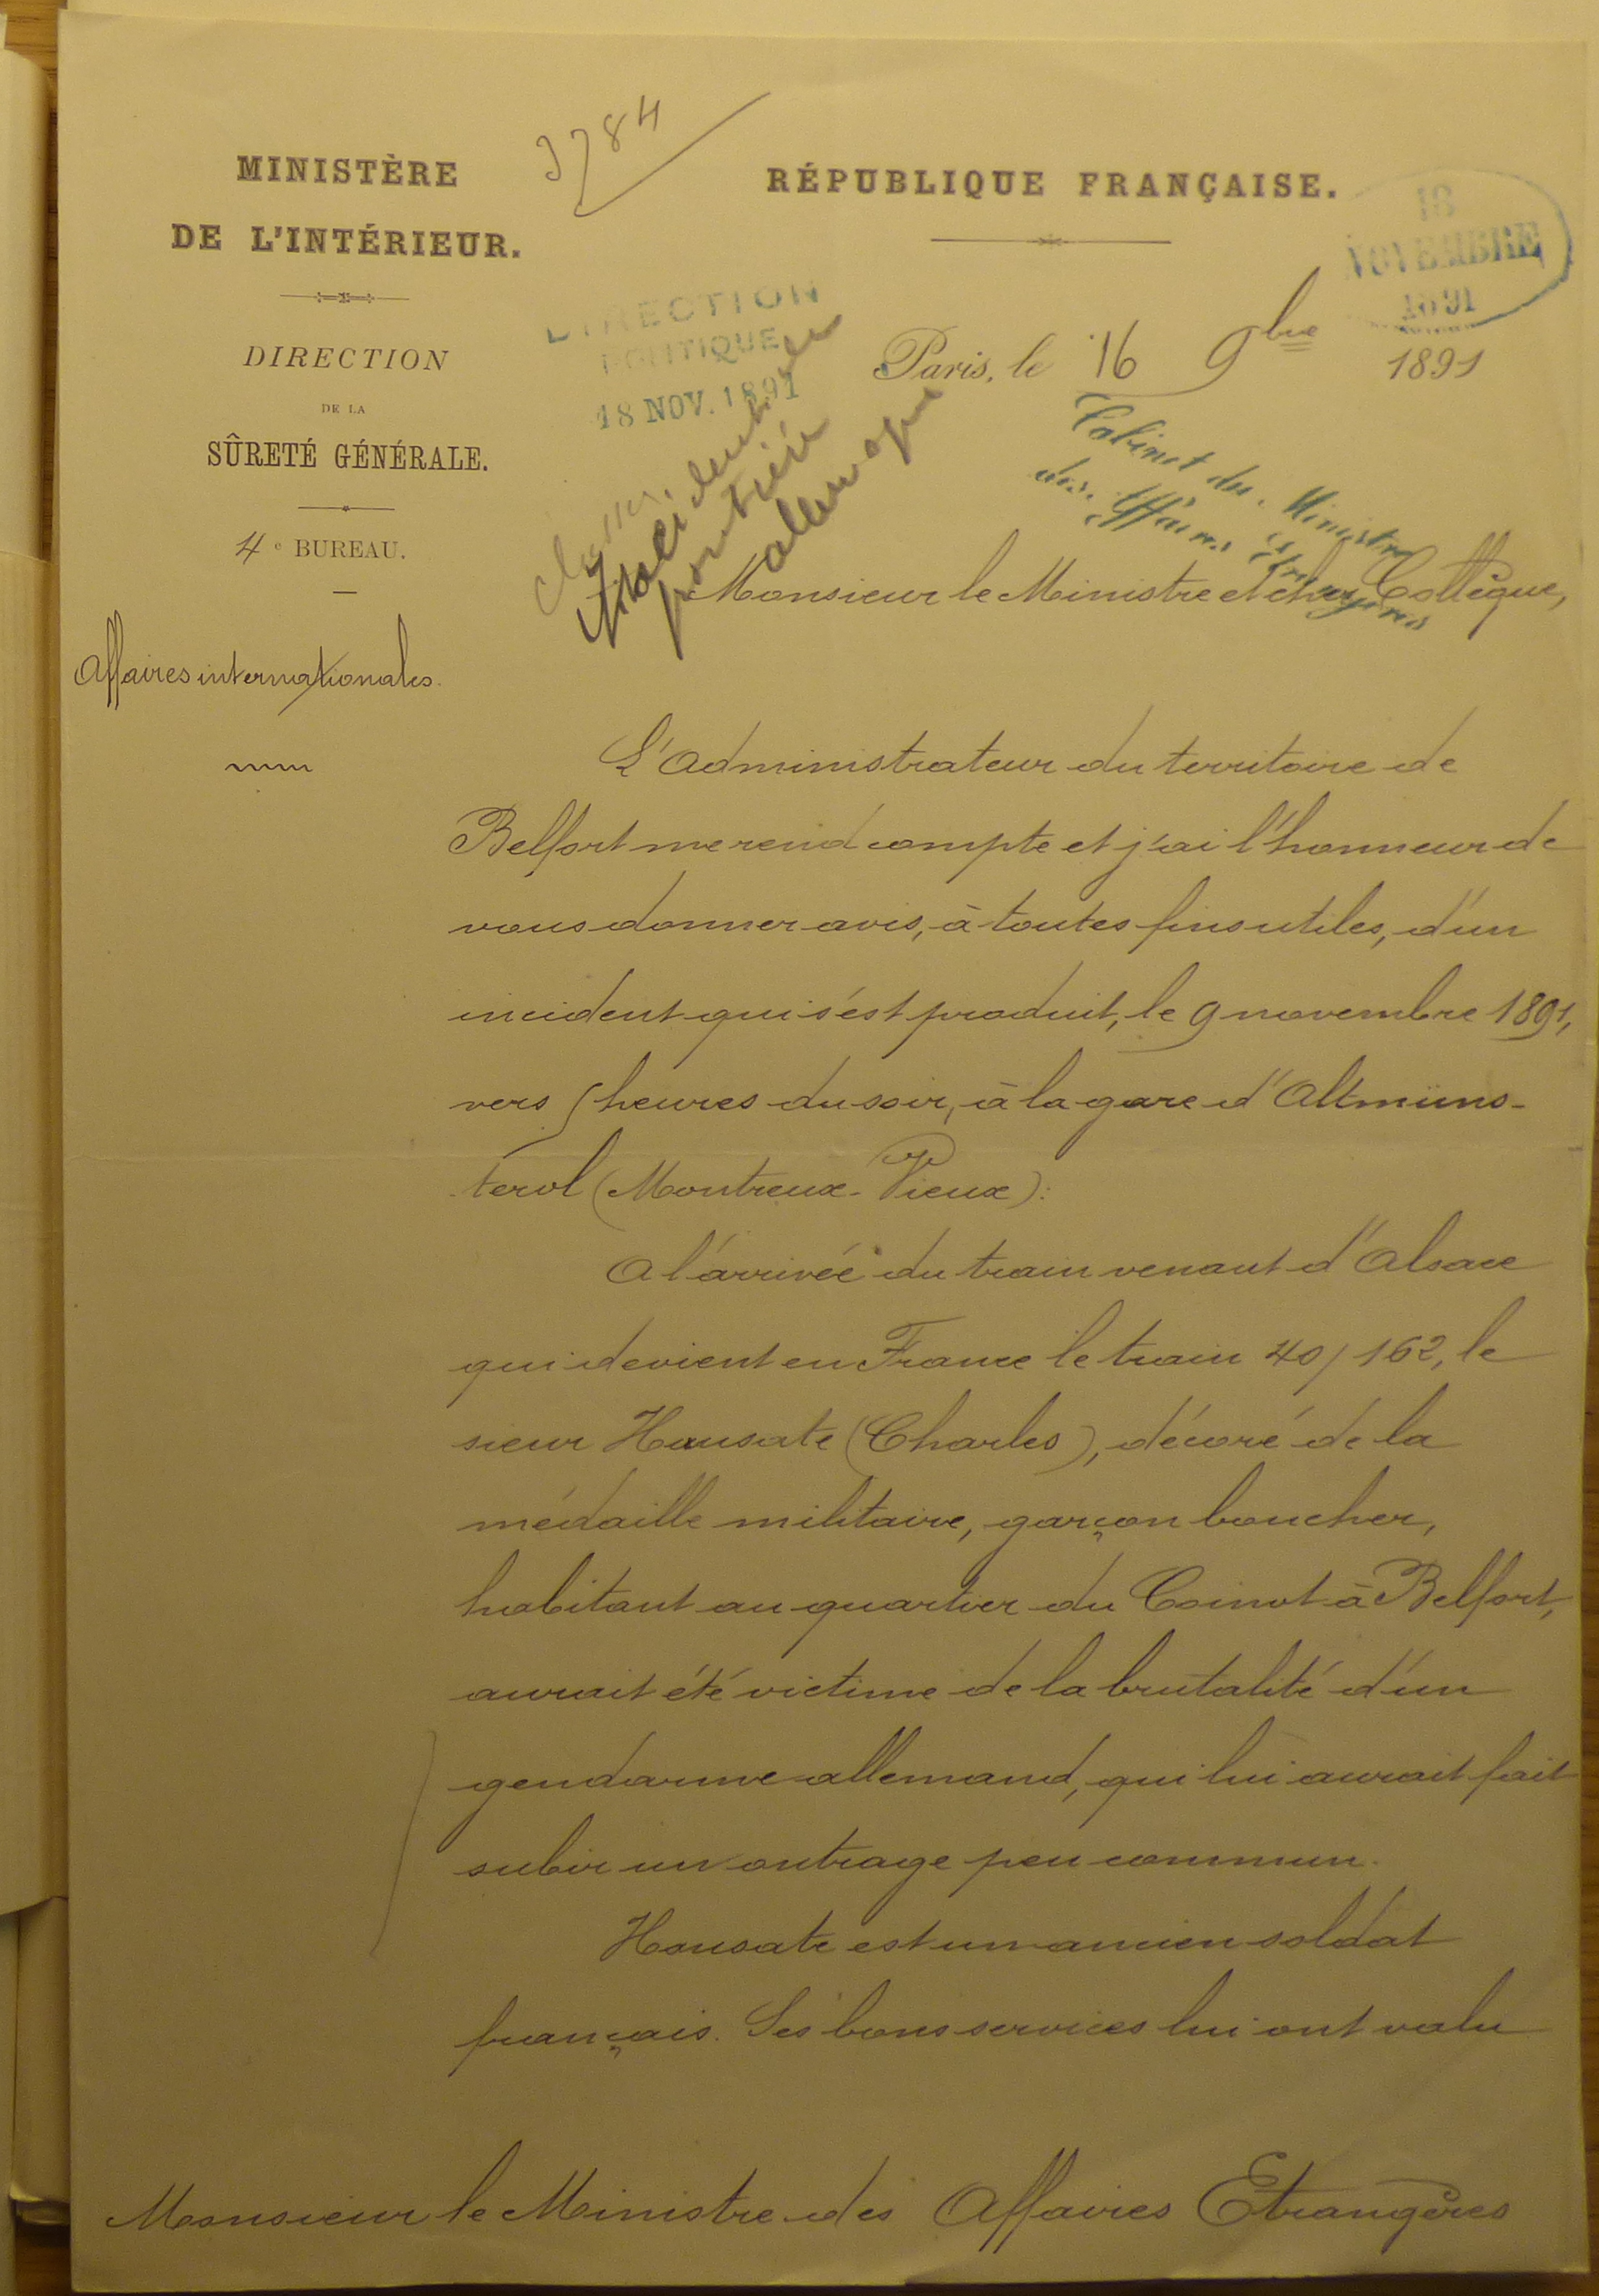 3784
MINISTÈRE
DE L'INTÉRIEUR.
DIRECTION
DE LA
SÛRETÉ GÉNÉRALE.
4e BUREAU.
Affaires internationales.
RÉPUBLIQUE FRANÇAISE.
18
NOVEMBRE
1891
DIRECTION
POLITIQUE
18 NOV. 1891
Paris, le 16 9bre 1891
Cabinet du Ministre
des Affaires Etrangères
frontière
allemagne
Monsieur le Ministre et cher Collègue,
L'Administrateur du territoire de
Belfort me rend compte et j'ai l'honneur de
vous donner avis, à toutes fins utiles, d'un
incident qui s'est produit, le 9 novembre 1891,
vers 5 heures du soir, à la gare d'Altmüns-
terol (Montreux-Vieux):
A l'arrivée du train venant d'Alsace
qui devient en France le train 40/162, le
sieur Hausate (Charles), décoré de la
médaille militaire, garçon boucher,
habitant au quartier du Coinot à Belfort,
aurait été victime de la brutalité d'un
gendarme allemand, qui lui aurait fait
subir un outrage peu commun.
Housate est un ancien soldat
français. Ses bons services lui ont valu
Monsieur le Ministre des Affaires Etrangères